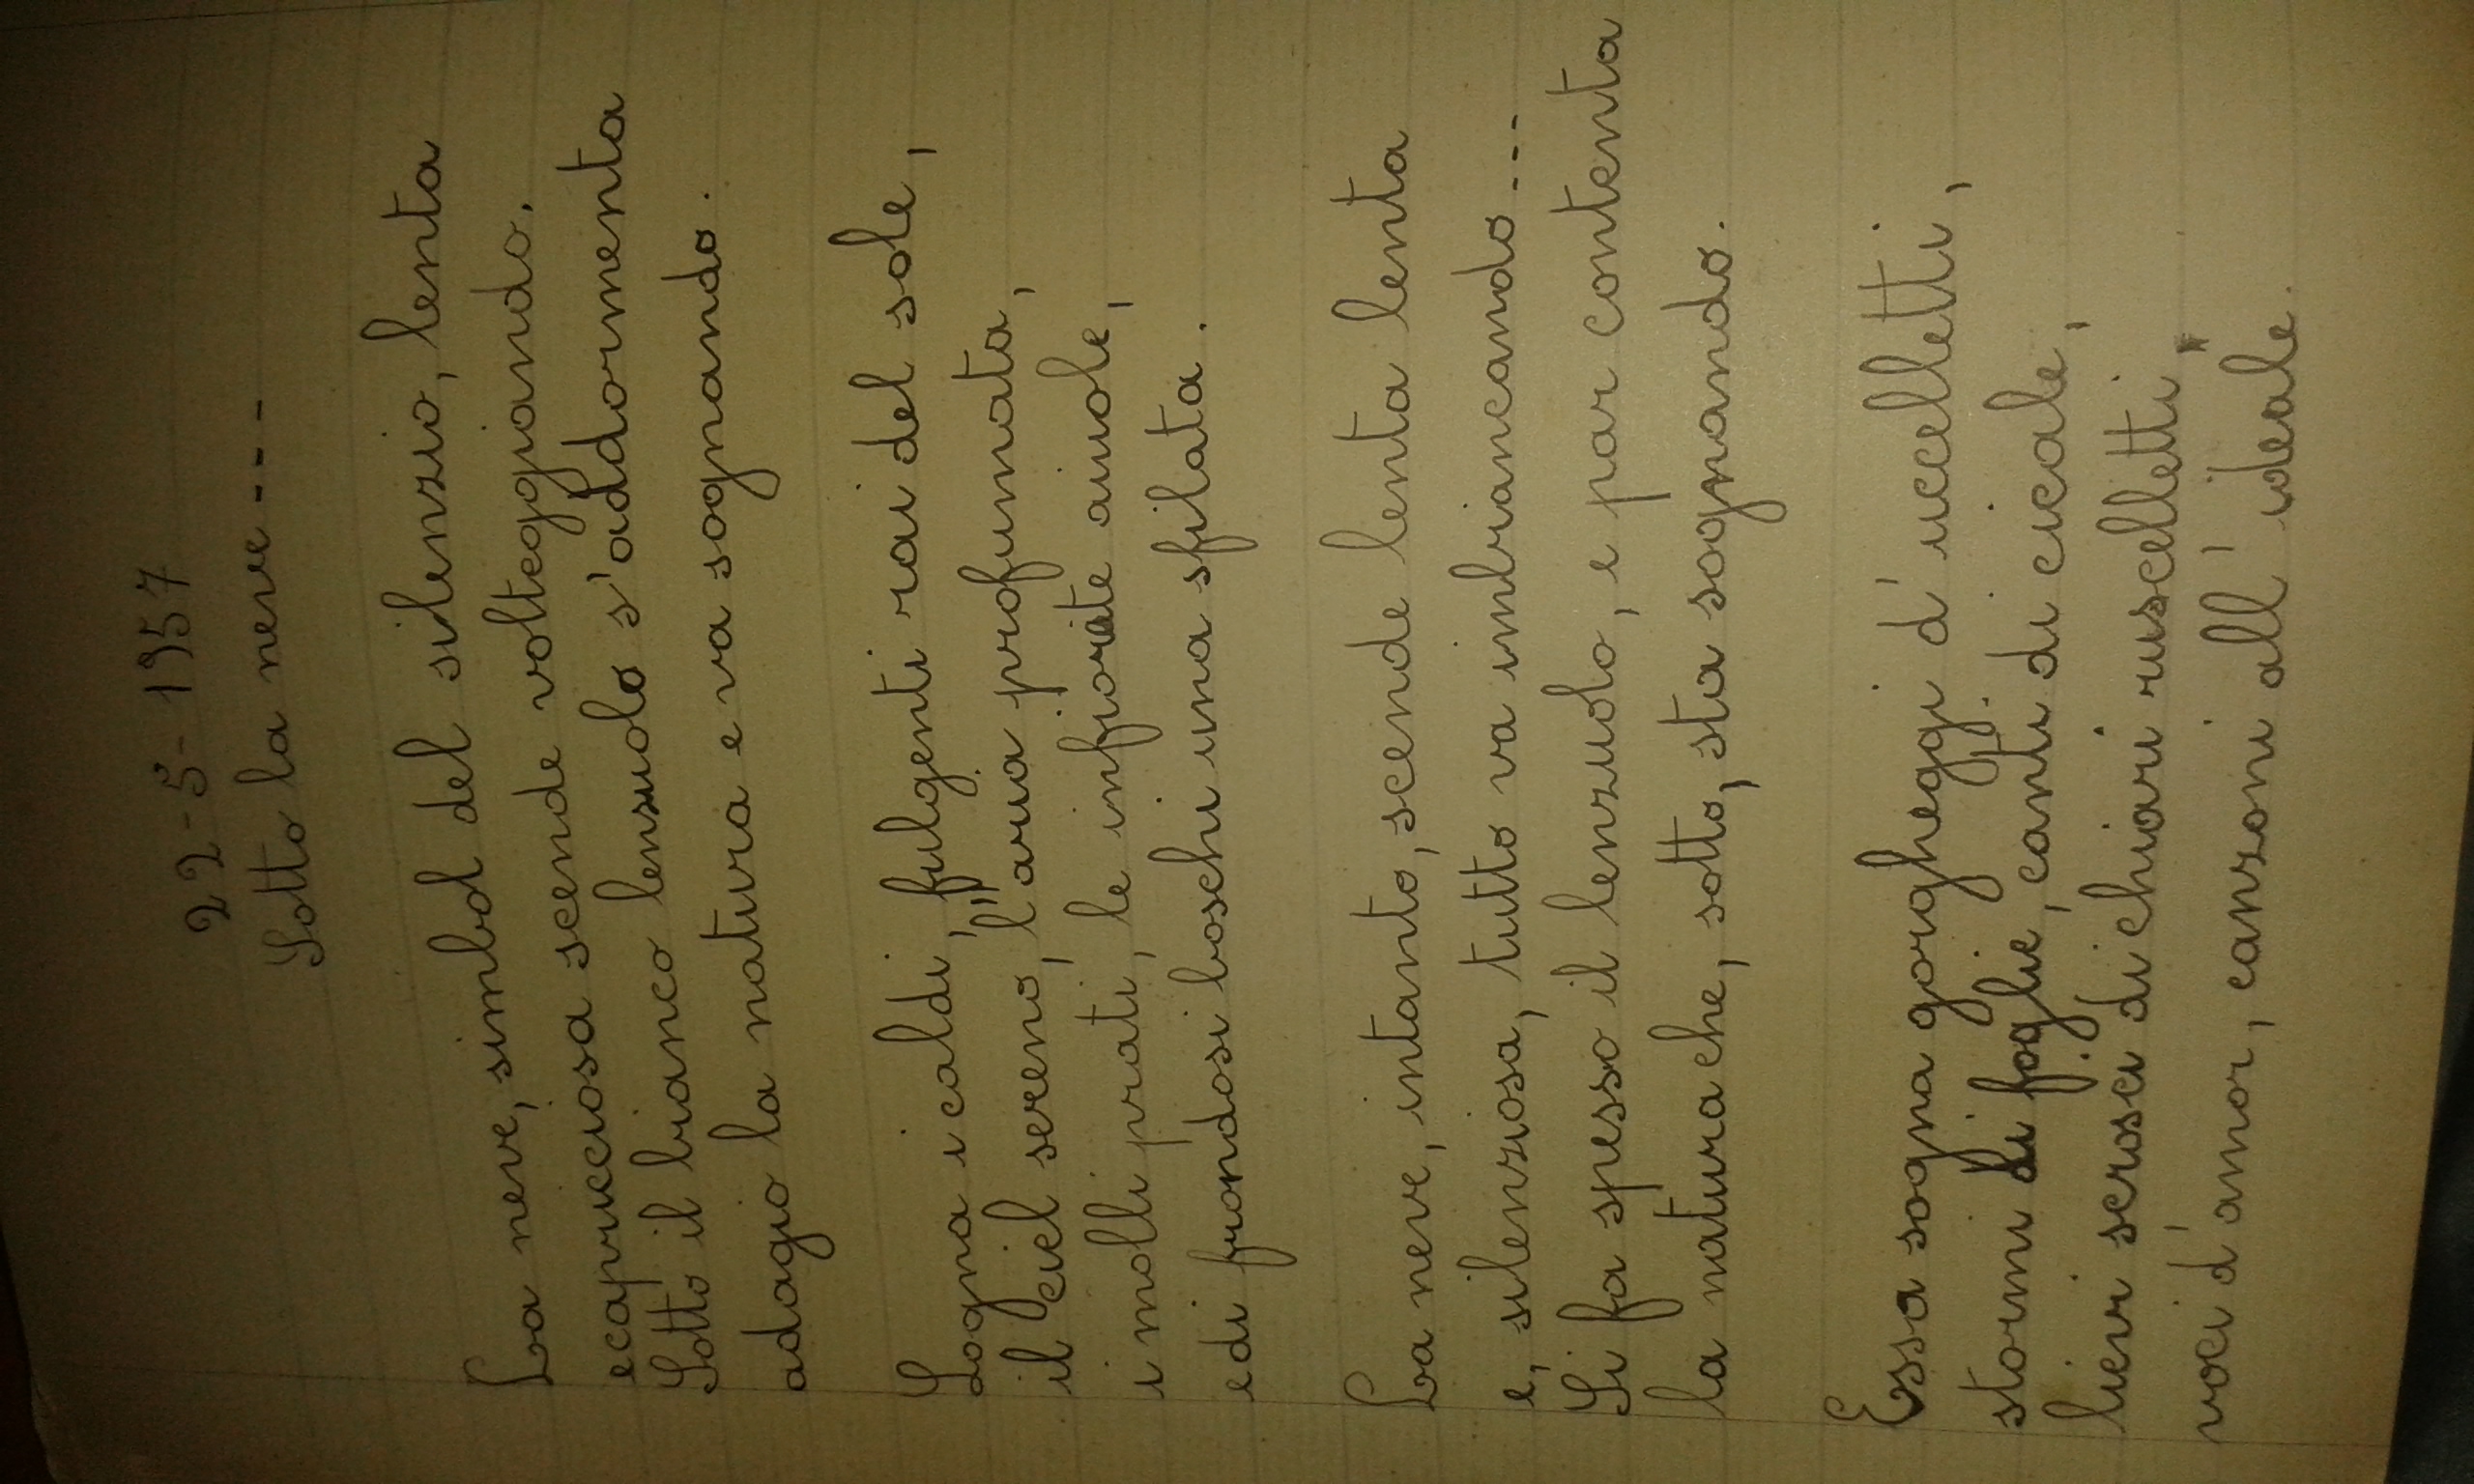 22-5-1957
Sotto la neve----
La neve, simbol del silenzio, lenta
e capricciosa scende volteggiando.
Sotto il bianco lenzuolo s'addormenta
adagio la natura e va sognando.
Sogna i caldi, fulgenti rai del sole,
il ciel sereno, l'aria profumata,
i molli prati, le infiorate aiuole,
e di frondosi boschi una sfilata.
La neve, intanto, scende lenta lenta
e, silenziosa, tutto va imbiancando---
Si fa spesso il lenzuolo, e par contenta
la natura che, sotto, sta sognando.
Essa sogna gorgheggi d'uccelletti,
stormi di foglie, canti di cicale,
lievi scrosci di chiari ruscelletti
voci d'amor, canzoni all'ideale.